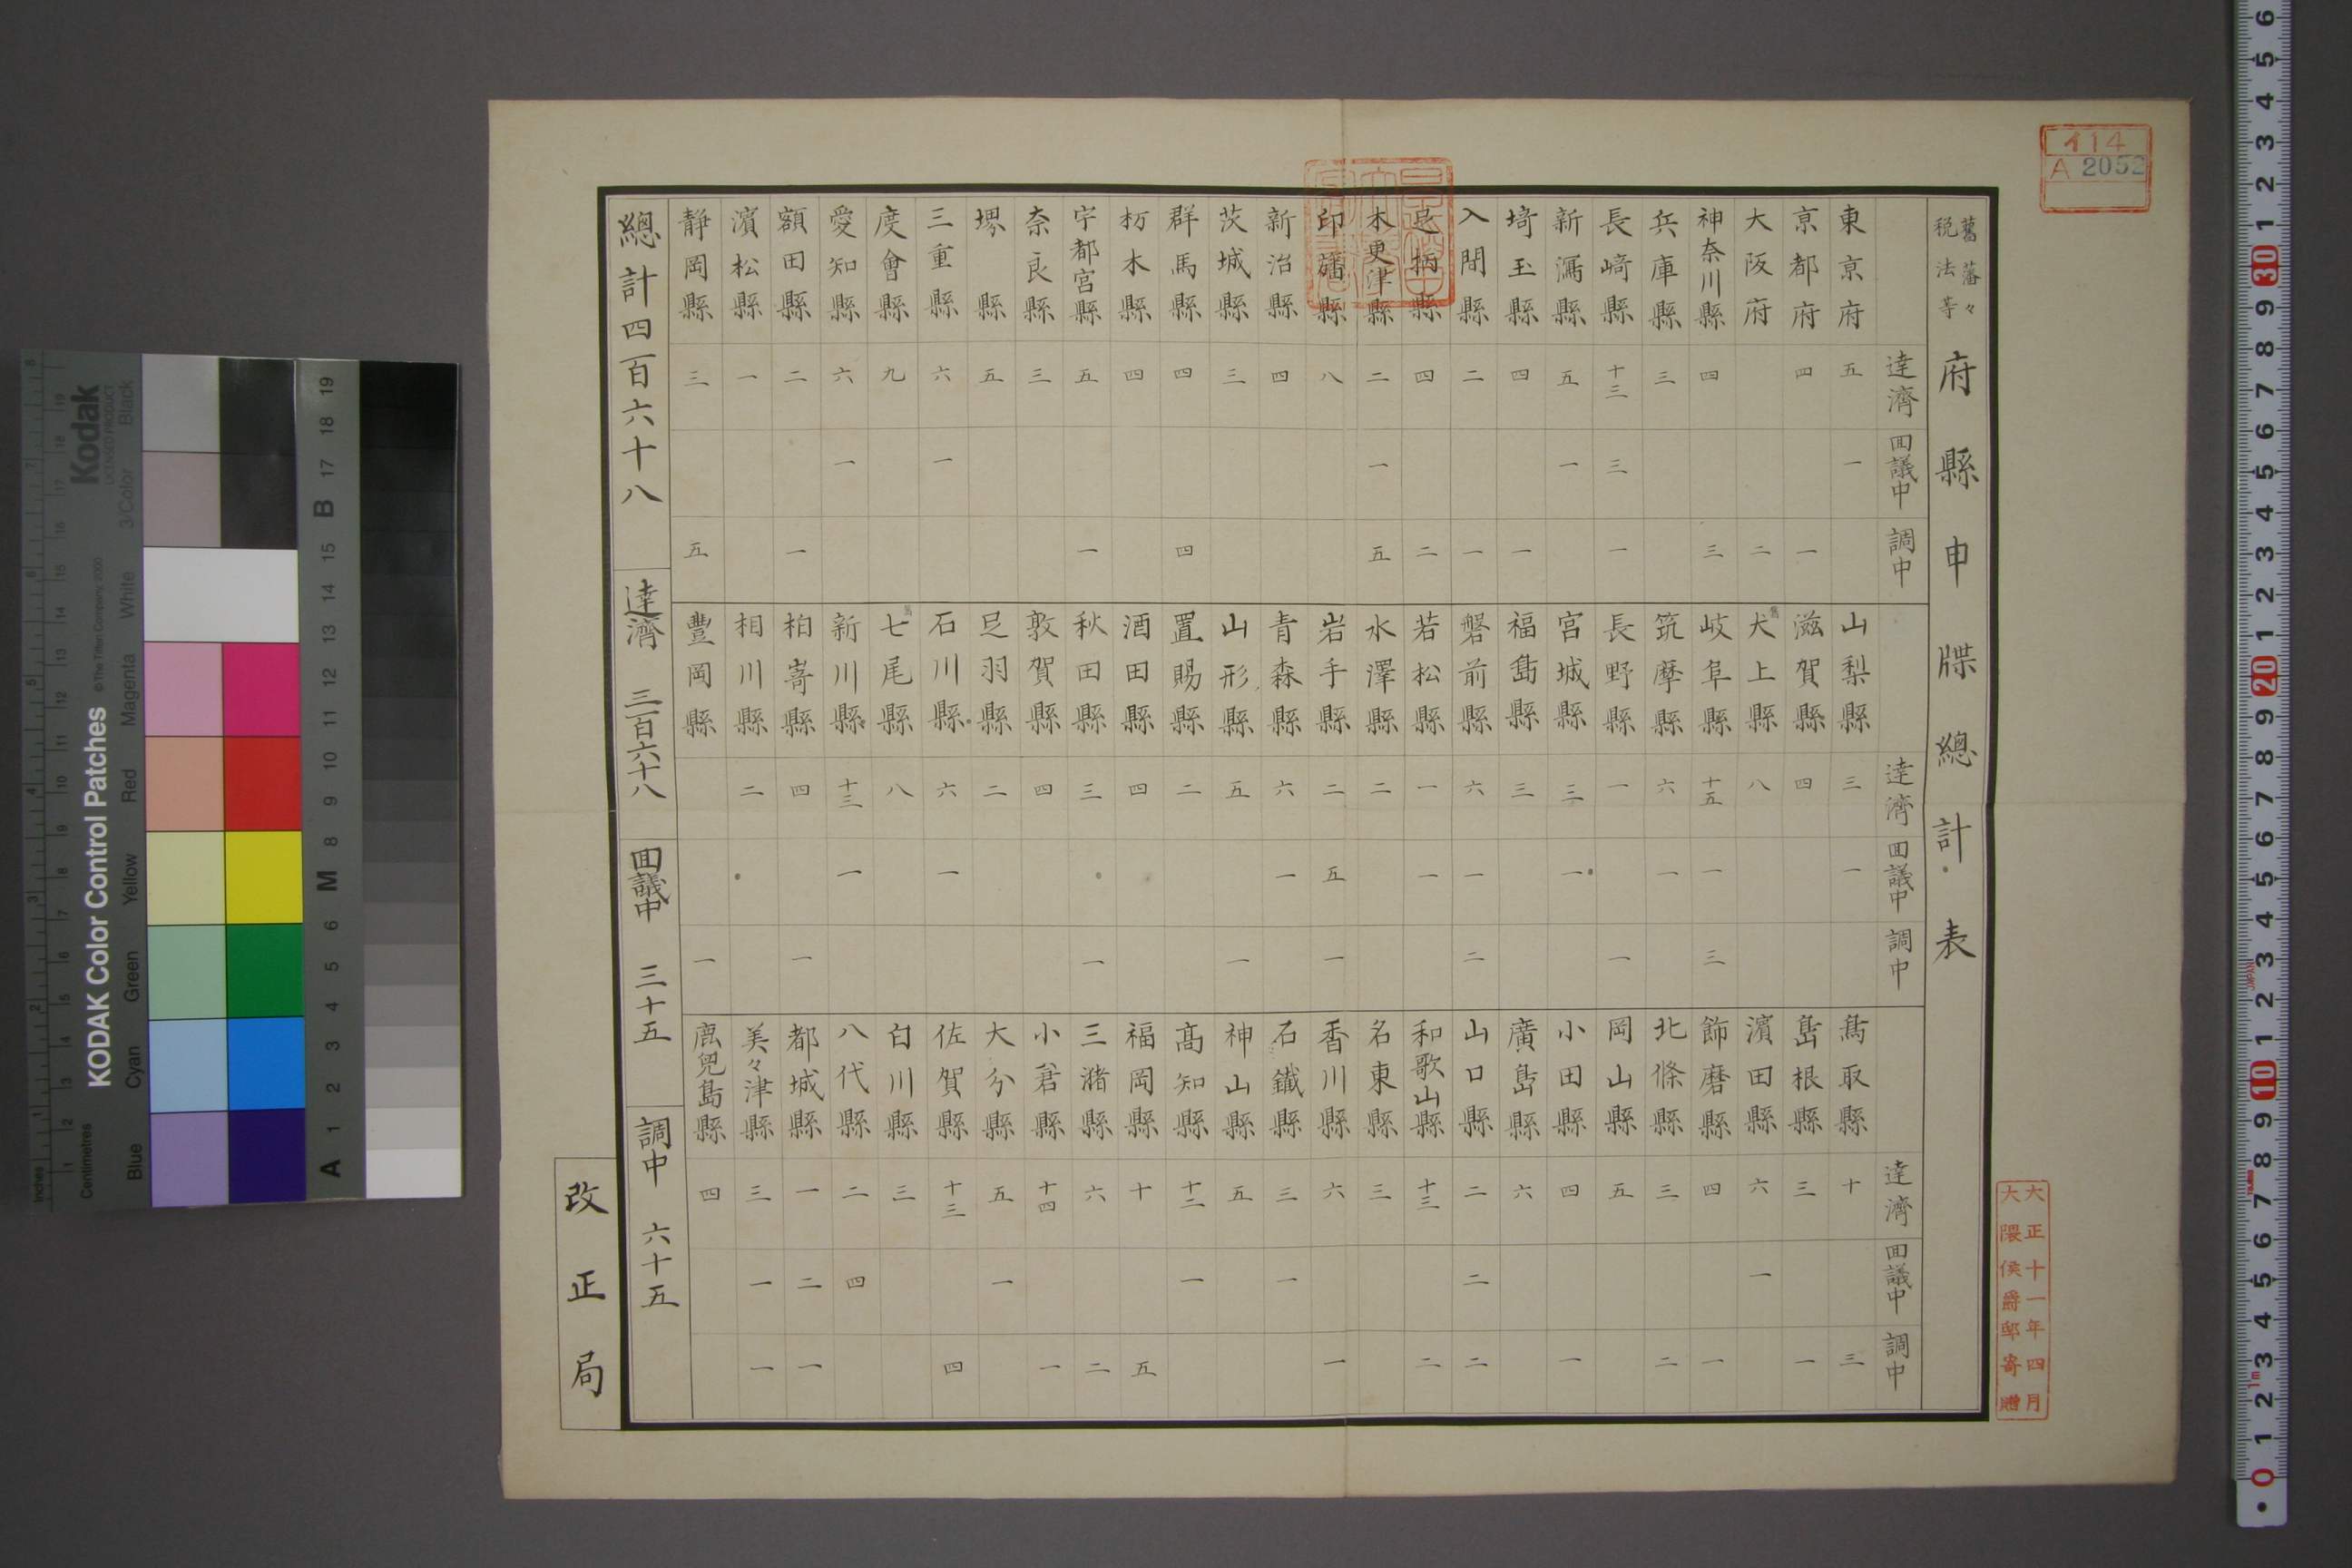 舊藩々税法等府縣申牒總計表
達濟 回議中 調中
東京府 五 一
京都府 四 一
大阪府 二
神奈川縣 四 三
兵庫縣 三
長崎縣 十三 三 一
新潟縣 五 一
埼玉縣 四 一
入間縣 二 一
足柄縣 四 二
木更津縣 二 一 五
印旛縣 八
新治縣 四
茨城縣 三
群馬縣 四 四
栃木縣 四
宇都宮縣 五 一
奈良縣 三
堺縣 五
三重縣 六 一
度會縣 九
愛知縣 六 一
額田縣 二 一
濱松縣 一
靜岡縣 三 五
達濟 回議中 調中
山梨縣 三 一
滋賀縣 四
舊犬上縣 八
岐阜縣 十五 一 三
筑摩縣 六 一
長野縣 一 一
宮城縣 三 一
福島縣 三
磐前縣 六 一 二
若松縣 一 一
水澤縣 二
岩手縣 二 五 一
青森縣 六 一
山形縣 五 一
置賜縣 二
酒田縣 四
秋田縣 三 一
敦賀縣 四
足羽縣 二
石川縣 六 一
舊七尾縣 八
新川縣 十三 一
柏嵜縣 四 一
相川縣 二
豐岡縣 一
達濟 回議中 調中
鳥取縣 十 三
島根縣 三 一
濱田縣 六 一
飾磨縣 四 一
北條縣 三 二
岡山縣 五
小田縣 四 一
廣島縣 六
山口縣 二 二 二
和歌山縣 十三 二
名東縣 三
香川縣 六 一
石鐵縣 三 一
神山縣 五
高知縣 十二 一
福岡縣 十 五
三潴縣 六 二
小倉縣 十四 一
大分縣 五 一
佐賀縣 十三 四
白川縣 三
八代縣 二 四
都城縣 一 二 一
美々津縣 三 一 一
鹿兒島縣 四
總計四百六十八
達濟 三百六十八
回議中 三十五
調中 六十五
改正局
114
A 2052
大正十一年四月
大隈侯爵邸寄贈
Kodak
LICENSED PRODUCT
KODAK Color Control Patches
© The Tiffen Company, 2000
Inches
Centimetres
Blue Cyan Green Yellow Red Magenta White 3/Color Black
A 1 2 3 4 5 6 M 8 9 10 11 12 13 14 15 B 17 18 19